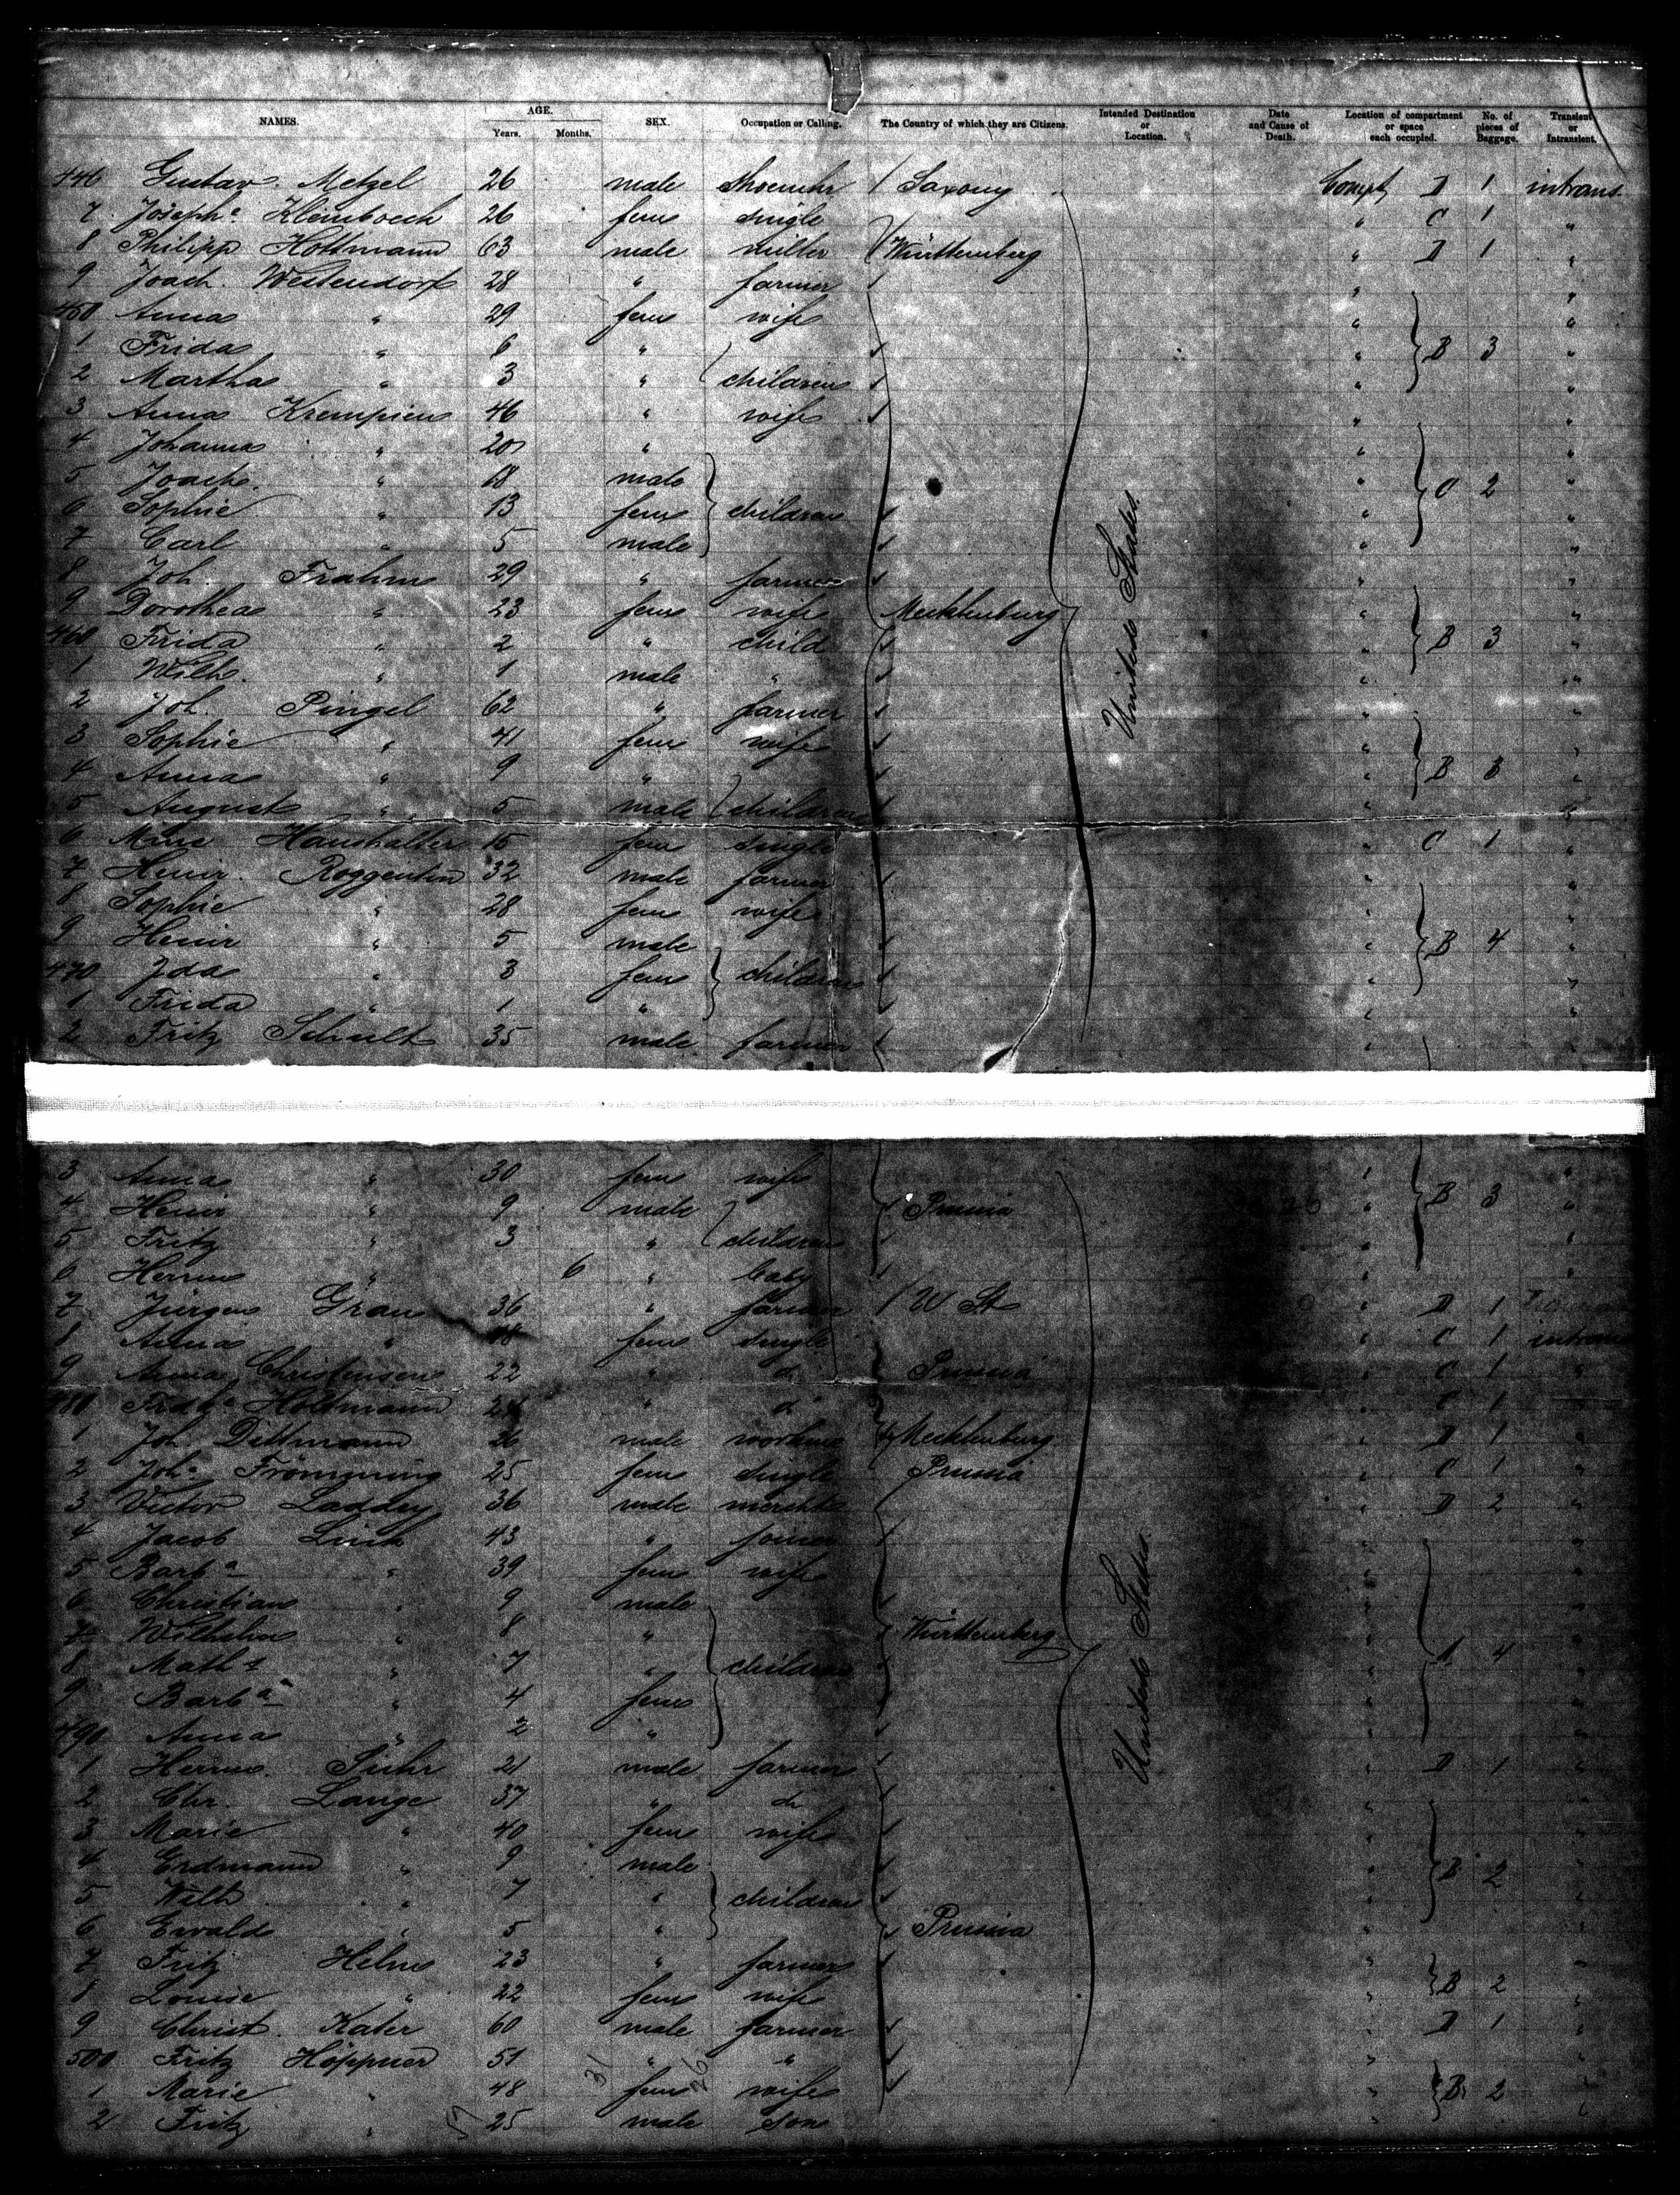 NAMES. AGE. Years. Months. SEX. Occupation or Calling. The Country of which they are Citizens. Intended Destination or Location. Date and Cause of Death. Location of compartment or space each occupied. No. of pieces of Baggage. Transient or Intransient.
446 Gustav Metzel 26 male Shoemkr / Saxony Compt D 1 intrans.
7 Joseph.a 26 fem single " C 1 "
8 Philipp Hottmann 63 male miller Württemberg " D 1 "
9 Joach. Westendorf 28 " farmer " "
450 Anna " 29 fem wife " "
1 Frida " 6 " " B 3 "
2 Martha " 3 " children " "
3 Anna Krempien 46 " wife " "
4 Johanna " 20 " " "
5 Joach. " 18 male " C 2 "
6 Sophie " 13 fem children " "
7 Carl " 5 male " "
8 Joh. Frahm 29 " farmer " "
9 Dorothea " 23 fem wife Mecklenburg " "
460 Frida " 2 " child " B 3 "
1 Wilh. " 1 male " " "
2 Joh. Pingel 62 " farmer " "
3 Sophie " 41 fem wife " "
4 Anna " 9 " " B 3 "
5 August " 5 male children " "
6 Mine Haushalter 15 fem single C 1 "
7 Heinr. Roggentin 32 male farmer " "
8 Sophie " 28 fem wife " "
9 Heinr " 5 male " B 4 "
470 Ida " 3 fem children " "
1 Frida " 1 " " "
2 Fritz Schult 35 male farmer " "
United States.
3 Anna " 30 fem wife " "
4 Heinr " 9 male Prussia " B 3 "
5 Fritz " 3 " children " "
6 Herm " 6 " baby " "
7 Jürgen Grau 36 " farmer / U St " D 1
8 Anna " 18 fem single " C 1 intrans
9 Anna Christensen 22 " do Prussia " C 1 "
480 Frdke Holtmann 24 " do " C 1 "
1 Joh Dittmann 26 male workm Mecklenburg " D 1 "
2 Joh.a Frömming 25 fem single Prussia " C 1 "
3 Victor Laddey 36 male mercht " D 2 "
4 Jacob Link 43 " joiner " "
5 Barb.a " 39 fem wife " "
6 Christian " 9 male " "
7 Wilhelm " 8 " Württemberg " "
8 Math.s " 7 " children " 4 "
9 Barb.a " 4 fem " "
490 Anna " 2 " " "
1 Herm. Suhr 21 male farmer " D 1 "
2 Chr. Lange 37 " do " "
3 Marie " 40 fem wife " "
4 Erdmann " 9 male " B 2 "
5 Wilh " 7 " children " "
6 Ewald " 5 " Prussia " "
7 Fritz Helm 23 " farmer " "
8 Louise " 22 fem wife " B 2 "
9 Christ. Kater 60 male farmer " D 1 "
500 Fritz Höppner 51 " " " "
1 Marie " 48 fem wife " B 2 "
2 Fritz " 25 male son " "
United States.
31
26